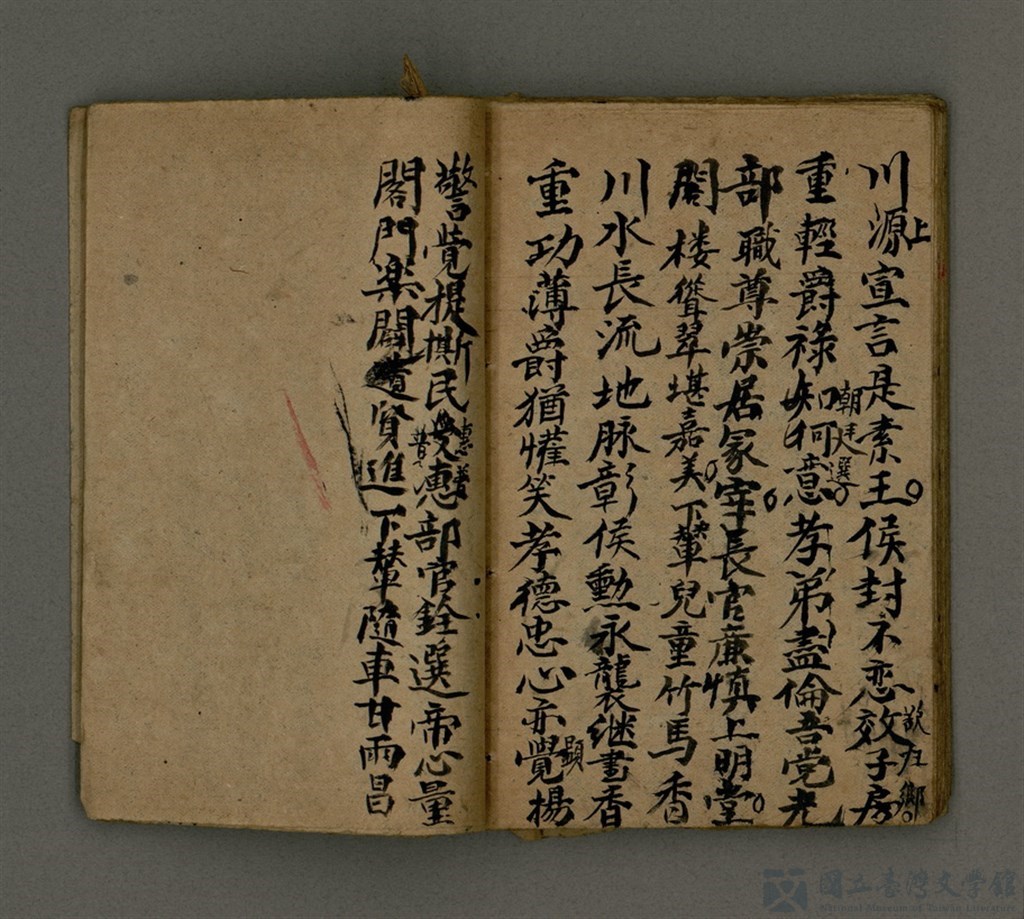 川源宣言是素王侯封不恋效子房
上
欲归鄉
重輕爵祿知何意孝弟盡倫吾党光
朝天選
部職尊崇居冢宰長官廉慎上明堂
閣楼聳翠堪嘉美下輦兒童竹馬香
川水長流地脉彰侯勳永襲继書香
重功薄爵猶懽笑孝德忠心亦覺揚
顕
警覺提撕民受惠部官銓選帝心量
惠普
普
閣門楽闢賁進下輦隨車甘雨昌
國立臺灣文學館
National Museum of Taiwan Literature